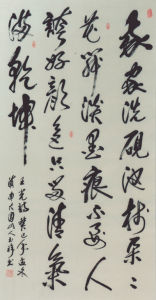 我家洗硯池樹朵朵
花開淡墨痕不要人
誇好顏色只留清氣
滿乾坤
王冕詩癸巳年孟冬